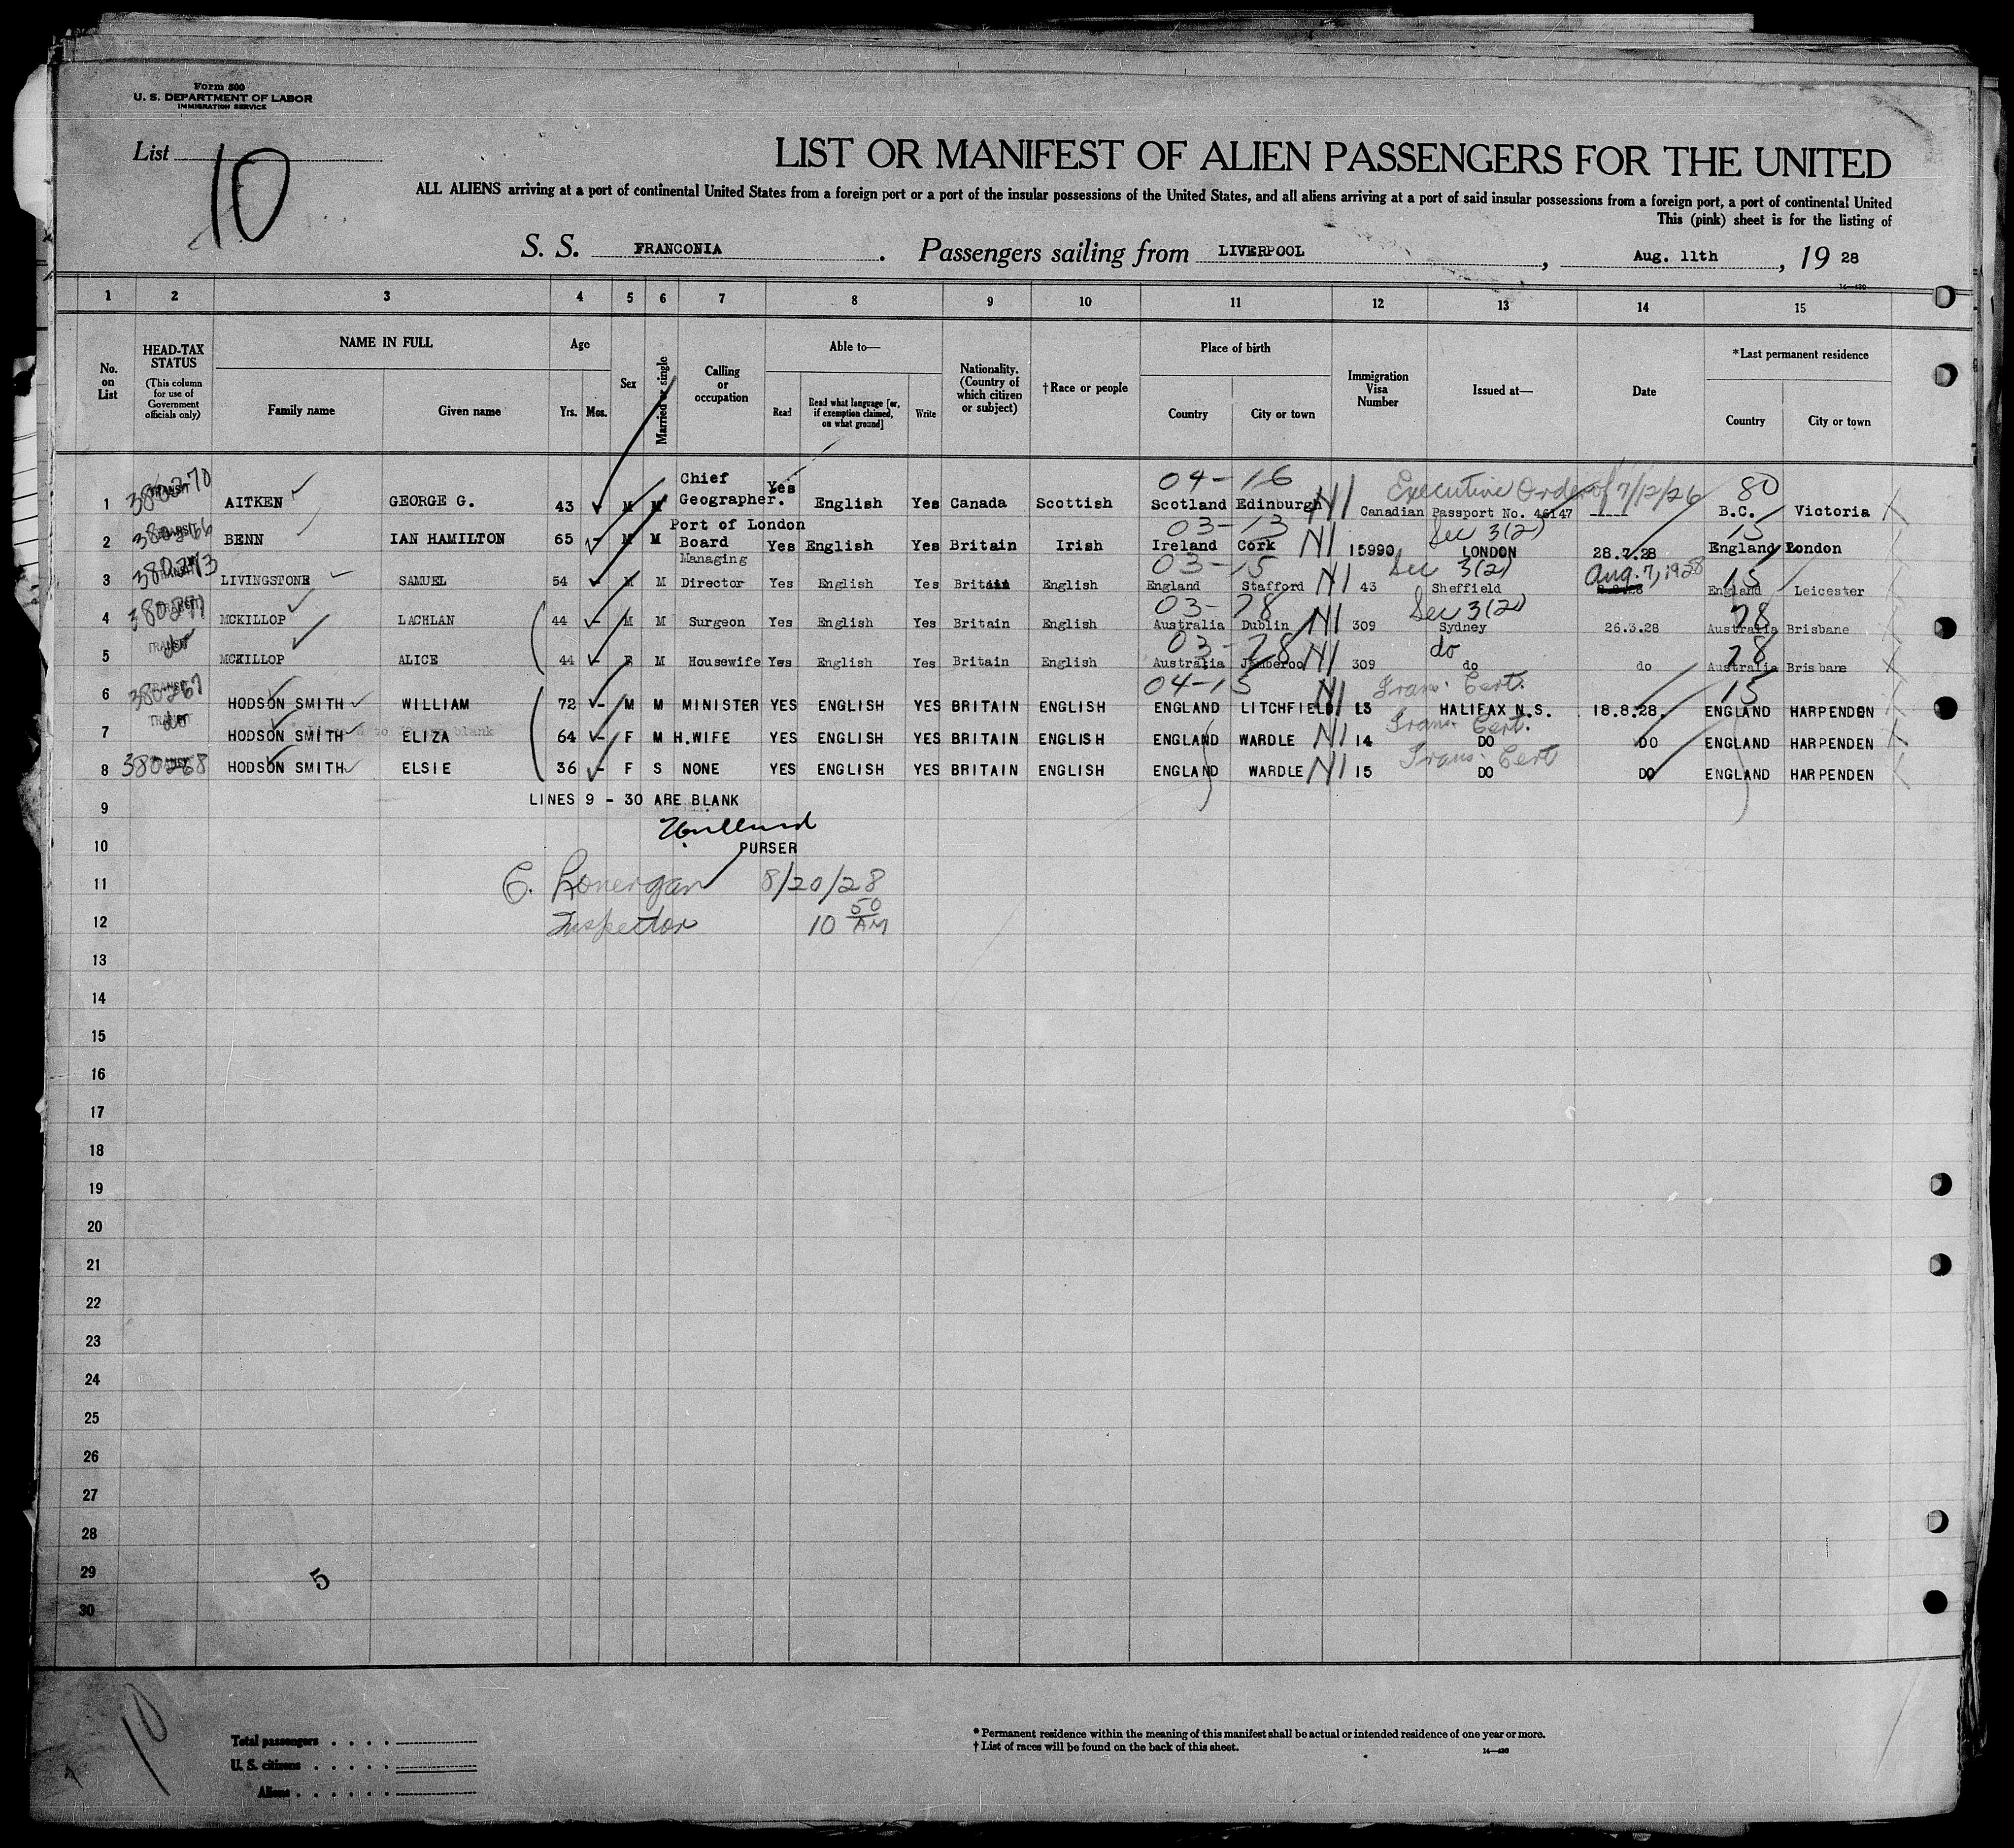 Form 500
U. S. DEPARTMENT OF LABOR
IMMIGRATION SERVICE
List 10
LIST OR MANIFEST OF ALIEN PASSENGERS FOR THE UNITED
ALL ALIENS arriving at a port of continental United States from a foreign port or a port of the insular possessions of the United States, and all aliens arriving at a port of said insular possessions from a foreign port, a port of continental United
This (pink) sheet is for the listing of
S. S. FRANCONIA. Passengers sailing from LIVERPOOL, Aug. 11th, 19 28
14—430
1 2 3 4 5 6 7 8 9 10 11 12 13 14 15
No. on List
HEAD-TAX STATUS (This column for use of Government officials only)
NAME IN FULL
Family name Given name
Age
Yrs. Mos.
Sex
Married or single
Calling or occupation
Able to—
Read Read what language [or, if exemption claimed, on what ground] Write
Nationality. (Country of which citizen or subject)
†Race or people
Place of birth
Country City or town
Immigration Visa Number
Issued at—
Date
*Last permanent residence
Country City or town
04-16 Executive Order of 7/12/26 80
1 380270 TRANSIT AITKEN GEORGE G. 43 M M Chief Geographer. Yes English Yes Canada Scottish Scotland Edinburgh NI Canadian Passport No. 46147 ---- B.C. Victoria
03-13 Sec 3(2) 15
2 TRANSIT BENN IAN HAMILTON 65 - M M Port of London Board Yes English Yes Britain Irish Ireland Cork NI 15990 LONDON 28.7.28 England London
03-15 Sec 3(2) Aug. 7, 1928 15
3 380273 LIVINGSTONE SAMUEL 54 - M M Managing Director Yes English Yes Britain English England Stafford NI 43 Sheffield England Leicester
03-78 Sec 3(2) 78
4 MCKILLOP LACHLAN 44 - M M Surgeon Yes English Yes Britain English Australia Dublin NI 309 Sydney 26.3.28 Australia Brisbane
03-78 do 78
5 TRANSIT do MCKILLOP ALICE 44 - F M Housewife Yes English Yes Britain English Australia Jamberoo NI 309 do do Australia Brisbane
04-15 Trans. Cert. 15
6 380267 HODSON SMITH WILLIAM 72 - M M MINISTER YES ENGLISH YES BRITAIN ENGLISH ENGLAND LITCHFIELD NI 13 HALIFAX N.S. 18.8.28. ENGLAND HARPENDEN
Trans. Cert.
7 do HODSON SMITH ELIZA 64 - F M H.WIFE YES ENGLISH YES BRITAIN ENGLISH ENGLAND WARDLE NI 14 DO DO ENGLAND HARPENDEN
Trans. Cert
8 380268 HODSON SMITH ELSIE 36 - F S NONE YES ENGLISH YES BRITAIN ENGLISH ENGLAND WARDLE NI 15 DO DO ENGLAND HARPENDEN
LINES 9 - 30 ARE BLANK
9
10 PURSER
11 C. Lonergan 8/20/28
12 Inspector 10 50 AM
13
14
15
16
17
18
19
20
21
22
23
24
25
26
27
28
29 5
30
10
Total passengers
U. S. citizens
Aliens
* Permanent residence within the meaning of this manifest shall be actual or intended residence of one year or more.
† List of races will be found on the back of this sheet.
14—430